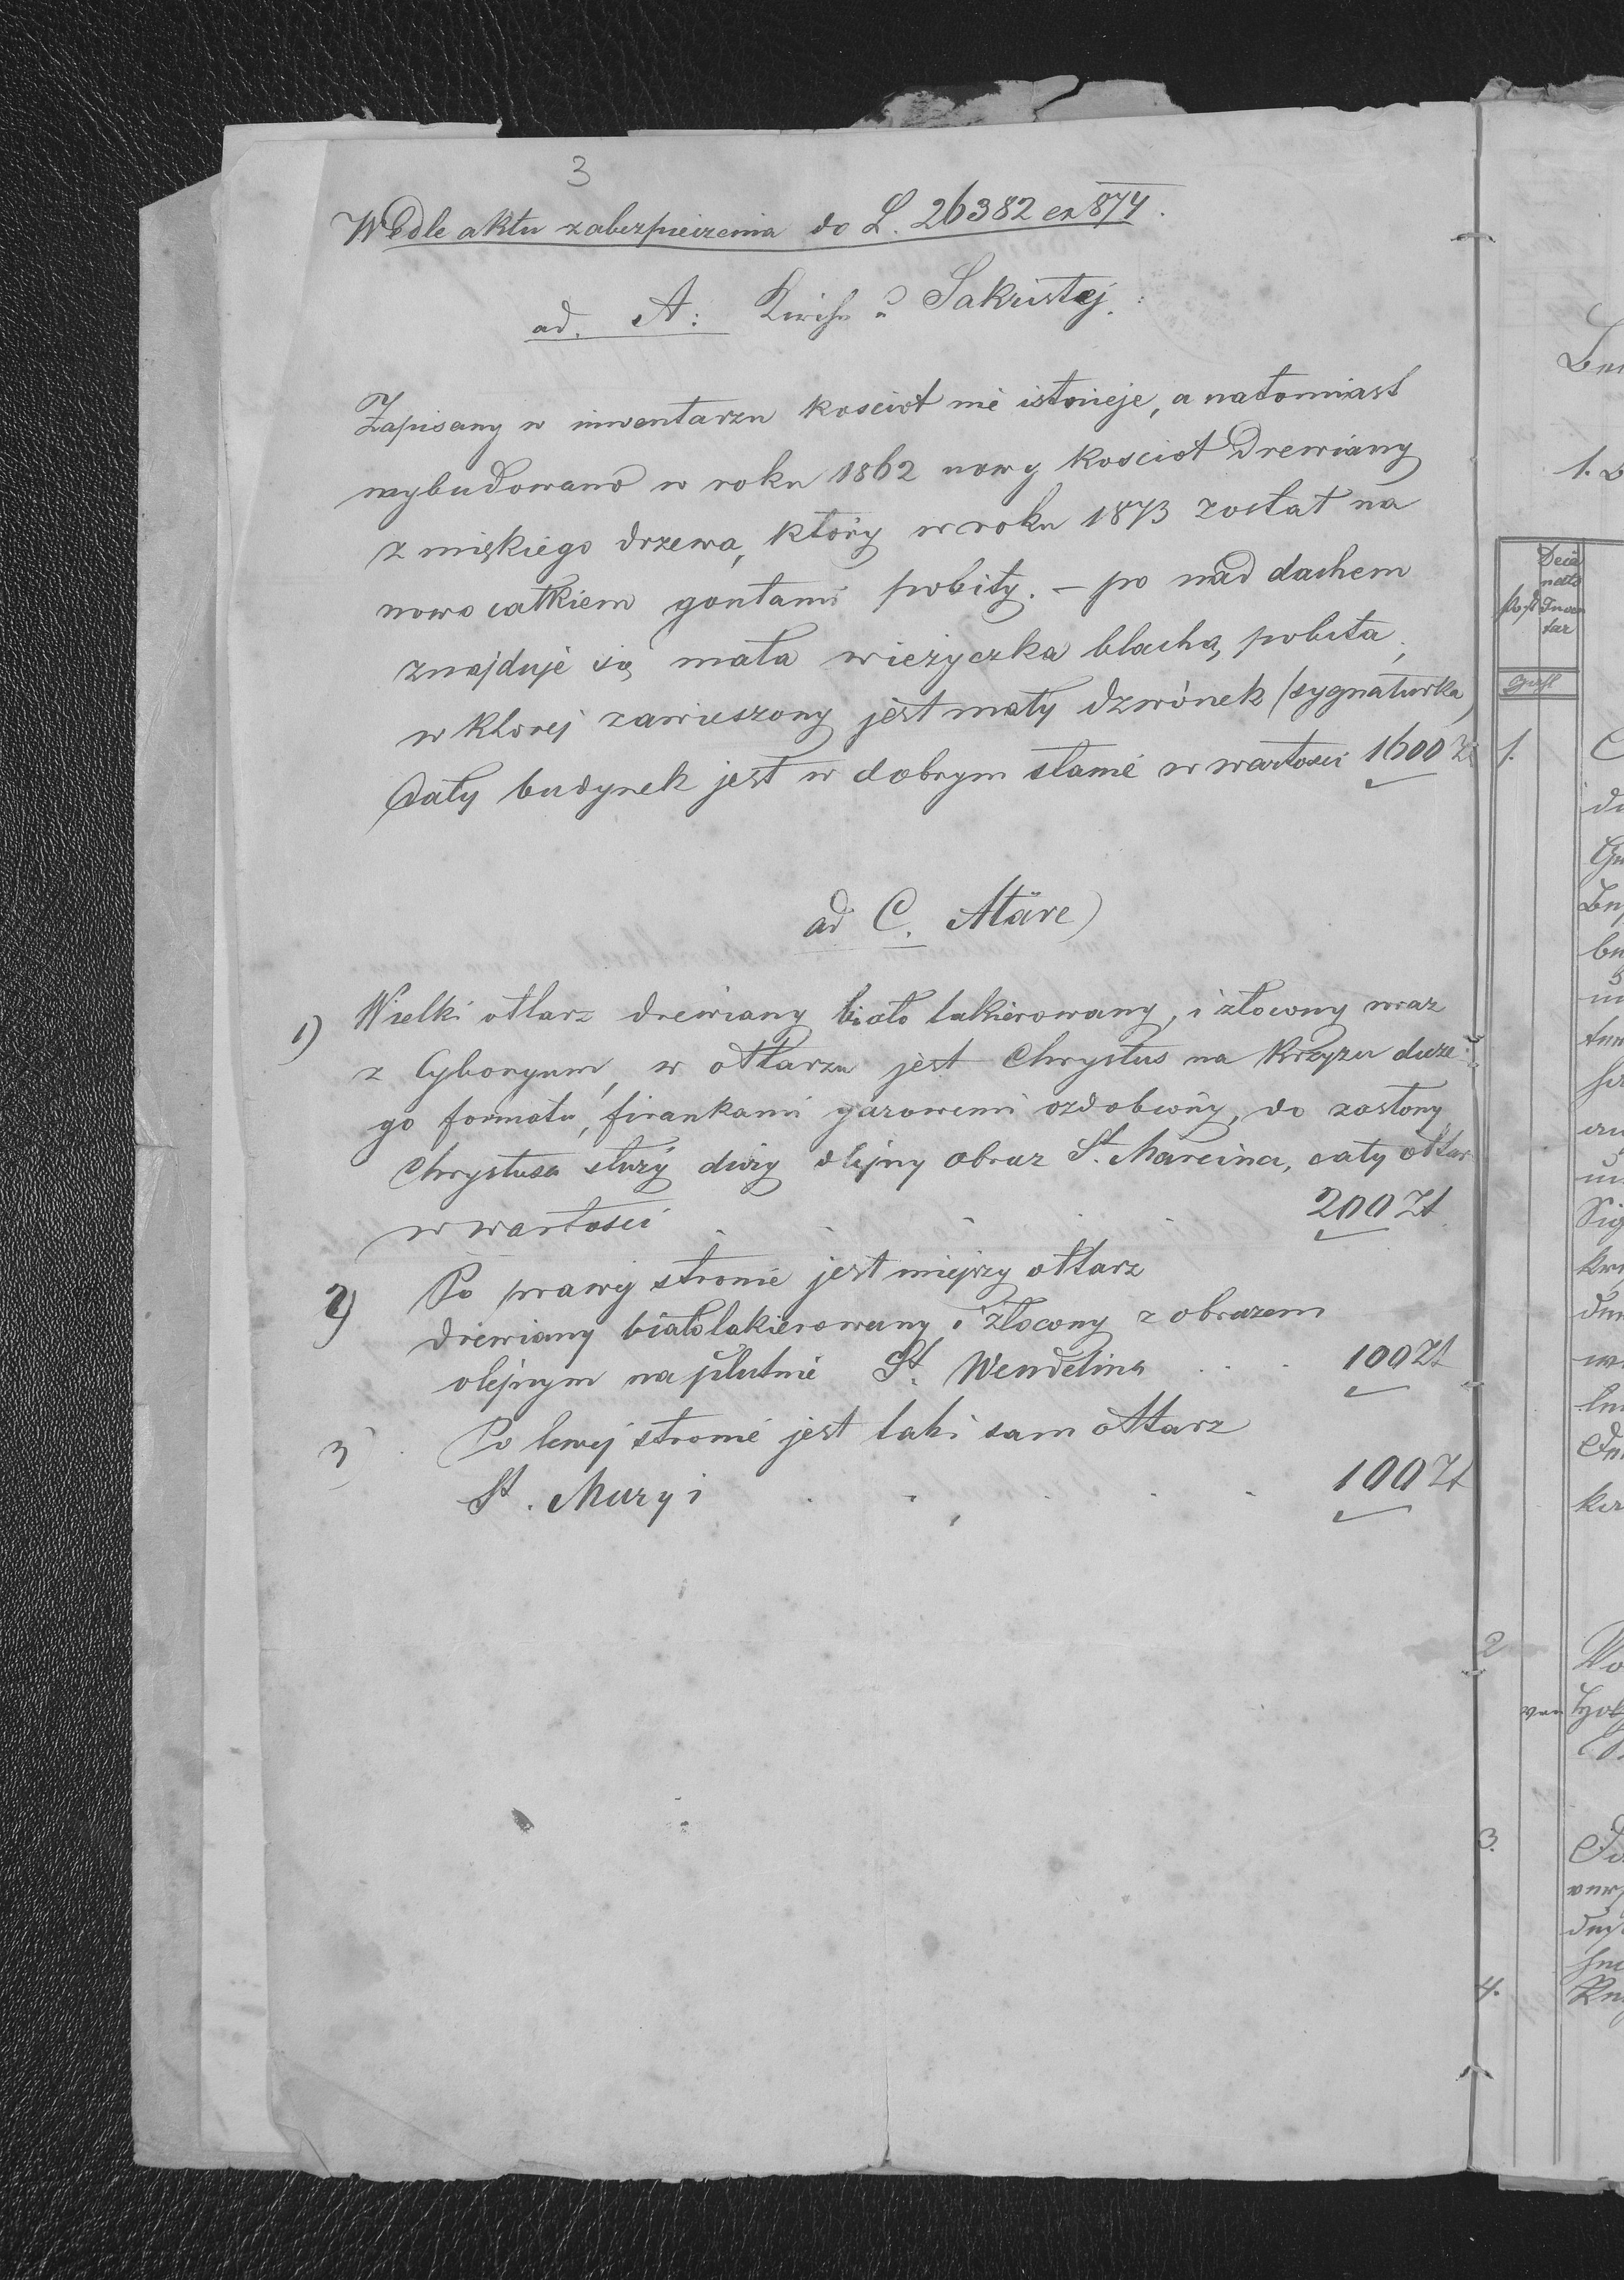 3
Wedle aktu zabezpieczenia do L. 26382 ex 874.
ad. A: Kirche u Sakristej:
Zapisany w inwentarzu koscioł nie istnieje, a natomiast
wybudowano w roku 1862 nowy koscioł drewiany
z miękiego drzewa, który w roku 1873 został na
nowo całkiem gontami pobity. – po nad dachem
znajduje się mała wieżyczka blachą pobita,
w ktorej zawieszony jest mały dzwònek (sygnaturka)
Cały budynek jest w dobrym stanie w wartosci 1600 Zł
ad C. Altäre)
1) Wielki ołtarz drewiany biało lakierowany, i złocony wraz
z Cyboryum, w ołtarzu jest Chrystus na krzyżu duże
go formatu, firankami gazowemi ozdobiony, do zasłony
Chrystusa służy duży olejny obraz St. Marcina, cały ołtarz
w wartosci . . . . 200 Zł
2) Po prawej stronie jest miejszy ołtarz
drewiany biało lakierowany i złocony z obrazem
olejnym na płutnie St. Wendelina . . . 100 Zł
3) Po lewej stronie jest taki sam ołtarz
St. Maryi . . . . . 100 Zł
1. B
Deca
nats
Post Inven
tar
1.
2
3.
4.
von
Sig